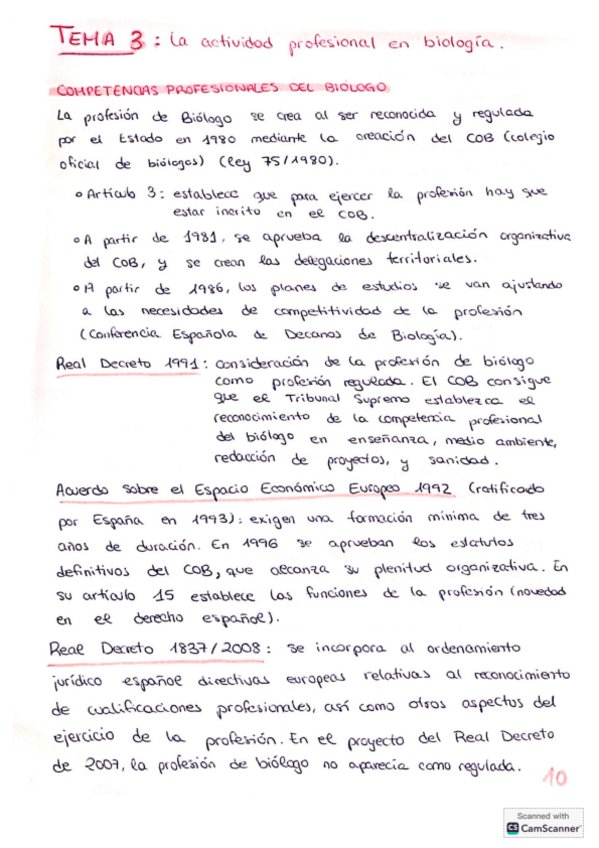 TEMA 3: La actividad profesional en biología.
COMPETENCIAS PROFESIONALES DEL BIÓLOGO
La profesión de Biólogo se crea al ser reconocida y regulada
por el Estado en 1980 mediante la creación del COB (colegio
oficial de biólogos) (Ley 75/1980).
Artículo 3: establece que para ejercer la profesión hay que
estar incrito en el COB.
A partir de 1981, se aprueba la descentralización organizativa
del COB, y se crean las delegaciones territoriales.
A partir de 1986, los planes de estudios se van ajustando
a las necesidades de competitividad de la profesión
(Conferencia Española de Decanos de Biología).
Real Decreto 1991: consideración de la profesión de biólogo
como profesión regulada. El COB consigue
que el Tribunal Supremo establezca el
reconocimiento de la competencia profesional
del biólogo en enseñanza, medio ambiente,
redacción de proyectos, y sanidad.
Acuerdo sobre el Espacio Económico Europeo 1992 (ratificado
por España en 1993): exigen una formación mínima de tres
años de duración. En 1996 se aprueban los estatutos
definitivos del COB, que alcanza su plenitud organizativa. En
su artículo 15 establece las funciones de la profesión (novedad
en el derecho español).
Real Decreto 1837/2008: se incorpora al ordenamiento
jurídico español directivas europeas relativas al reconocimiento
de cualificaciones profesionales, así como otros aspectos del
ejercicio de la profesión. En el proyecto del Real Decreto
de 2007, la profesión de biólogo no aparecía como regulada.
10
Scanned with
CS CamScanner